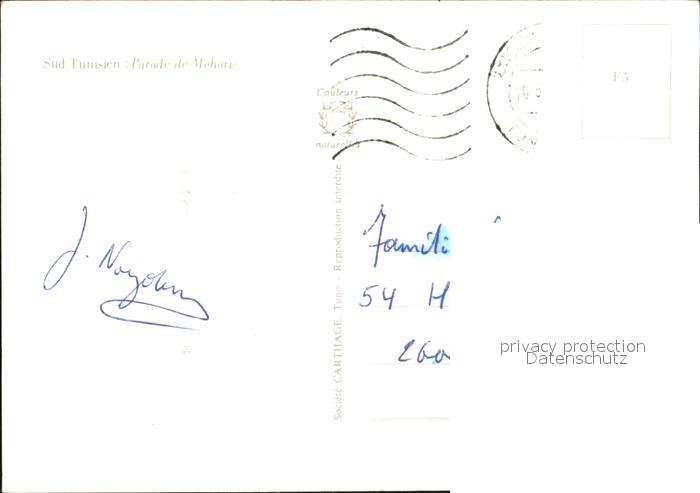 Sud Tunisien : Parade de Méharis
Couleurs
naturelles
F5
Société CARTHAGE, Tunis - Reproduction interdite
J.
Famili
54 H
260
privacy protection
Datenschutz